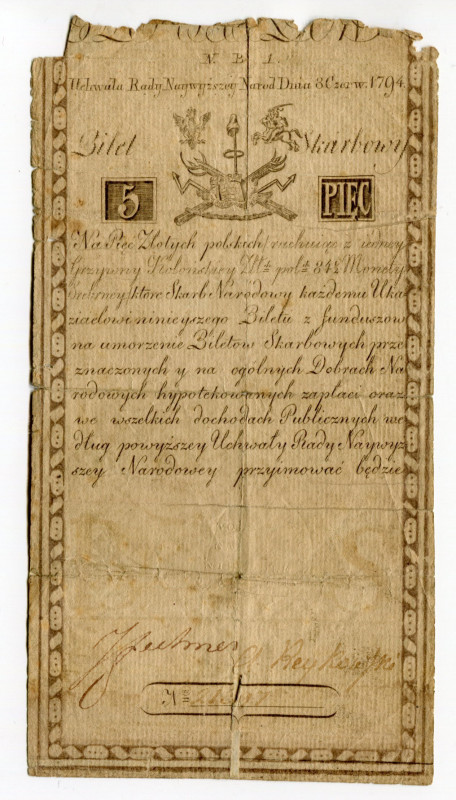 N. B. 1.
Uchwała Rady Naywyższey Narod: Dnia 8 Czerw. 1794.
Bilet Skarbowy
5 PIĘC
Na Pięć Złotych polskich / rachuiąc z iedney
Grzywny Kolońskiey Zło: pol: 84½ Monety
Srebrney / które Skarb Narodowy każdemu Uka
zicielowi ninieyszego Biletu z funduszów
na umorzenie Biletów Skarbowych prze
znaczonych y na ogólnych Dobrach Na
rodowych hypotekowanych zapłaci oraz
we wszelkich dochodach Publicznych we
dług powyższey Uchwały Rady Naywyż
szey Narodowey przyimować będzie
N=